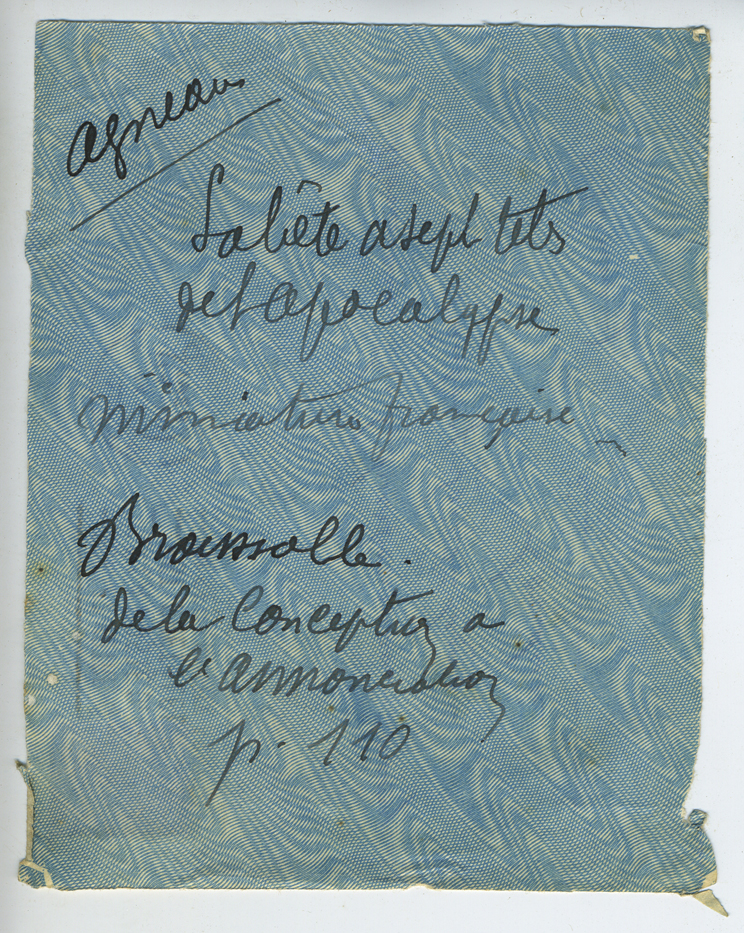 agneau
La bête a sept têts
de l'apocalypse
Miniature française
Broussolle.
de la Conception a
l'annonciation
p. 110